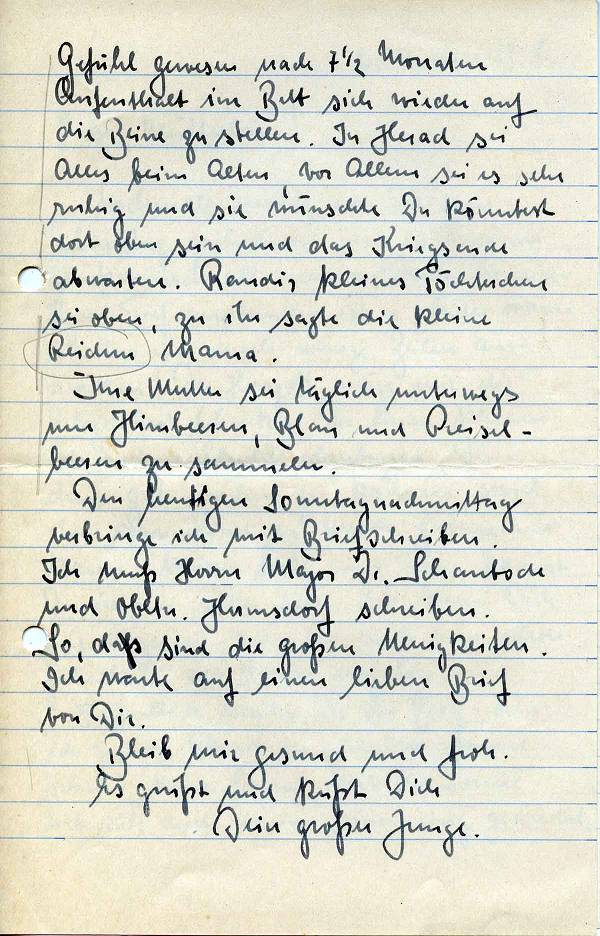 Gefühl gewesen nach 7 1/2 Monaten
Aufenthalt im Bett sich wieder auf
die Beine zu stellen. In sei
Alles beim Alten, vor Allem sei es sehr
ruhig und sie wünschte Du könntest
dort oben sein und das Kriegsende
abwarten. Randis kleines Töchterchen
sei oben, zu ihr sagte die kleine
Mama.
Ihre Mutter sei täglich unterwegs
um Himbeeren, Blau und Preisel-
beeren zu sammeln.
Den heutigen Sonntagnachmittag
verbringe ich mit Briefschreiben.
Ich muß Herrn Major Dr.
und Obltn. Hermsdorf schreiben.
So, daß sind die großen Neuigkeiten.
Ich warte auf einen lieben Brief
von Dir.
Bleib mir gesund und froh.
Es grüßt und küßt Dich
Dein großer Junge.